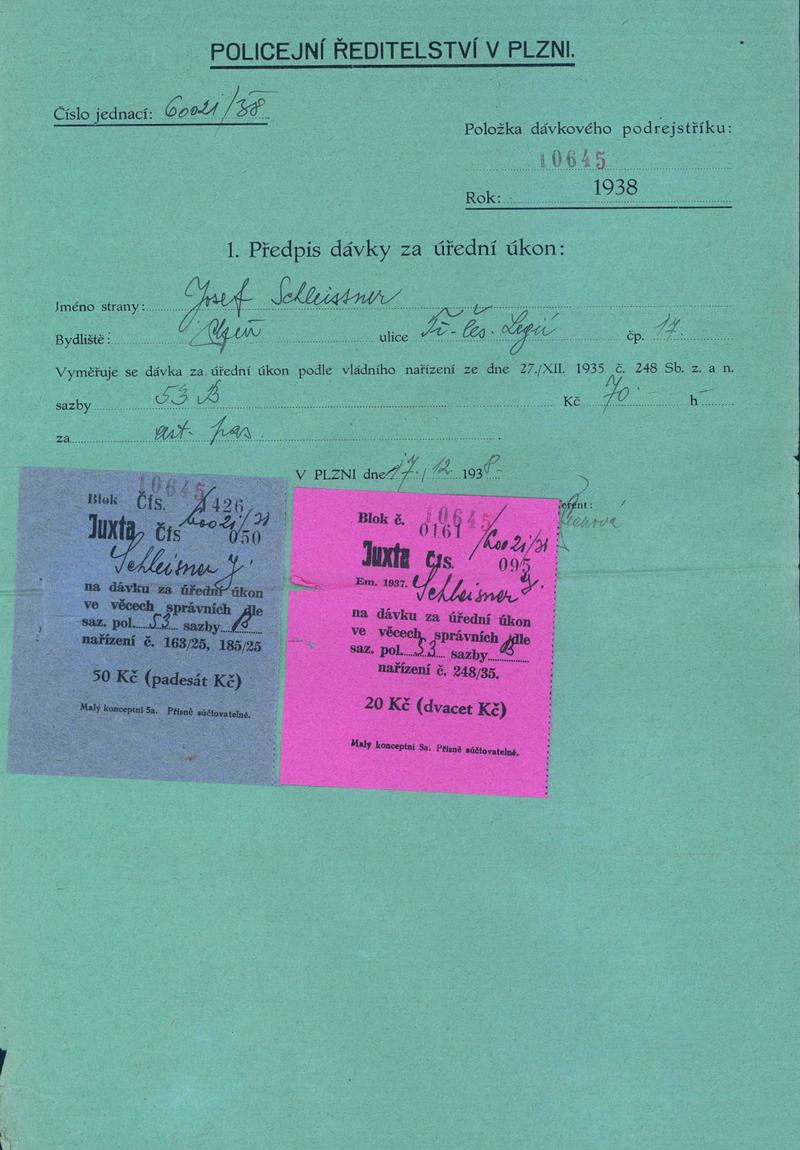 POLICEJNÍ ŘEDITELSTVÍ V PLZNI.
Číslo jednací: 60021/38
Položka dávkového podrejstříku:
10645
Rok: 1938
1. Předpis dávky za úřední úkon:
Jméno strany: Josef Schleissner
Bydliště: Plzeň ulice Tř. čs. Legií čp. 17.
Vyměřuje se dávka za úřední úkon podle vládního nařízení ze dne 27./XII. 1935 č. 248 Sb. z. a n.
sazby 53 B Kč 70 - h -
za cest. pas.
V PLZNI dne 17./12 1938.
10645
Blok Čís. 1426
Juxta Čís 050
60021/38
Schleisner J.
na dávku za úřední úkon
ve věcech správních dle
saz. pol. 53 sazby B
nařízení č. 163/25, 185/25
50 Kč (padesát Kč)
Malý konceptní 5a. Přísně súčtovatelné.
erent:
10645
Blok č. 0161
60021/38
Juxta čís. 095
Em. 1937. Schleisner J.
na dávku za úřední úkon
ve věcech správních dle
saz. pol. 53 sazby B
nařízení č. 248/35.
20 Kč (dvacet Kč)
Malý konceptní 5a. Přísně súčtovatelné.